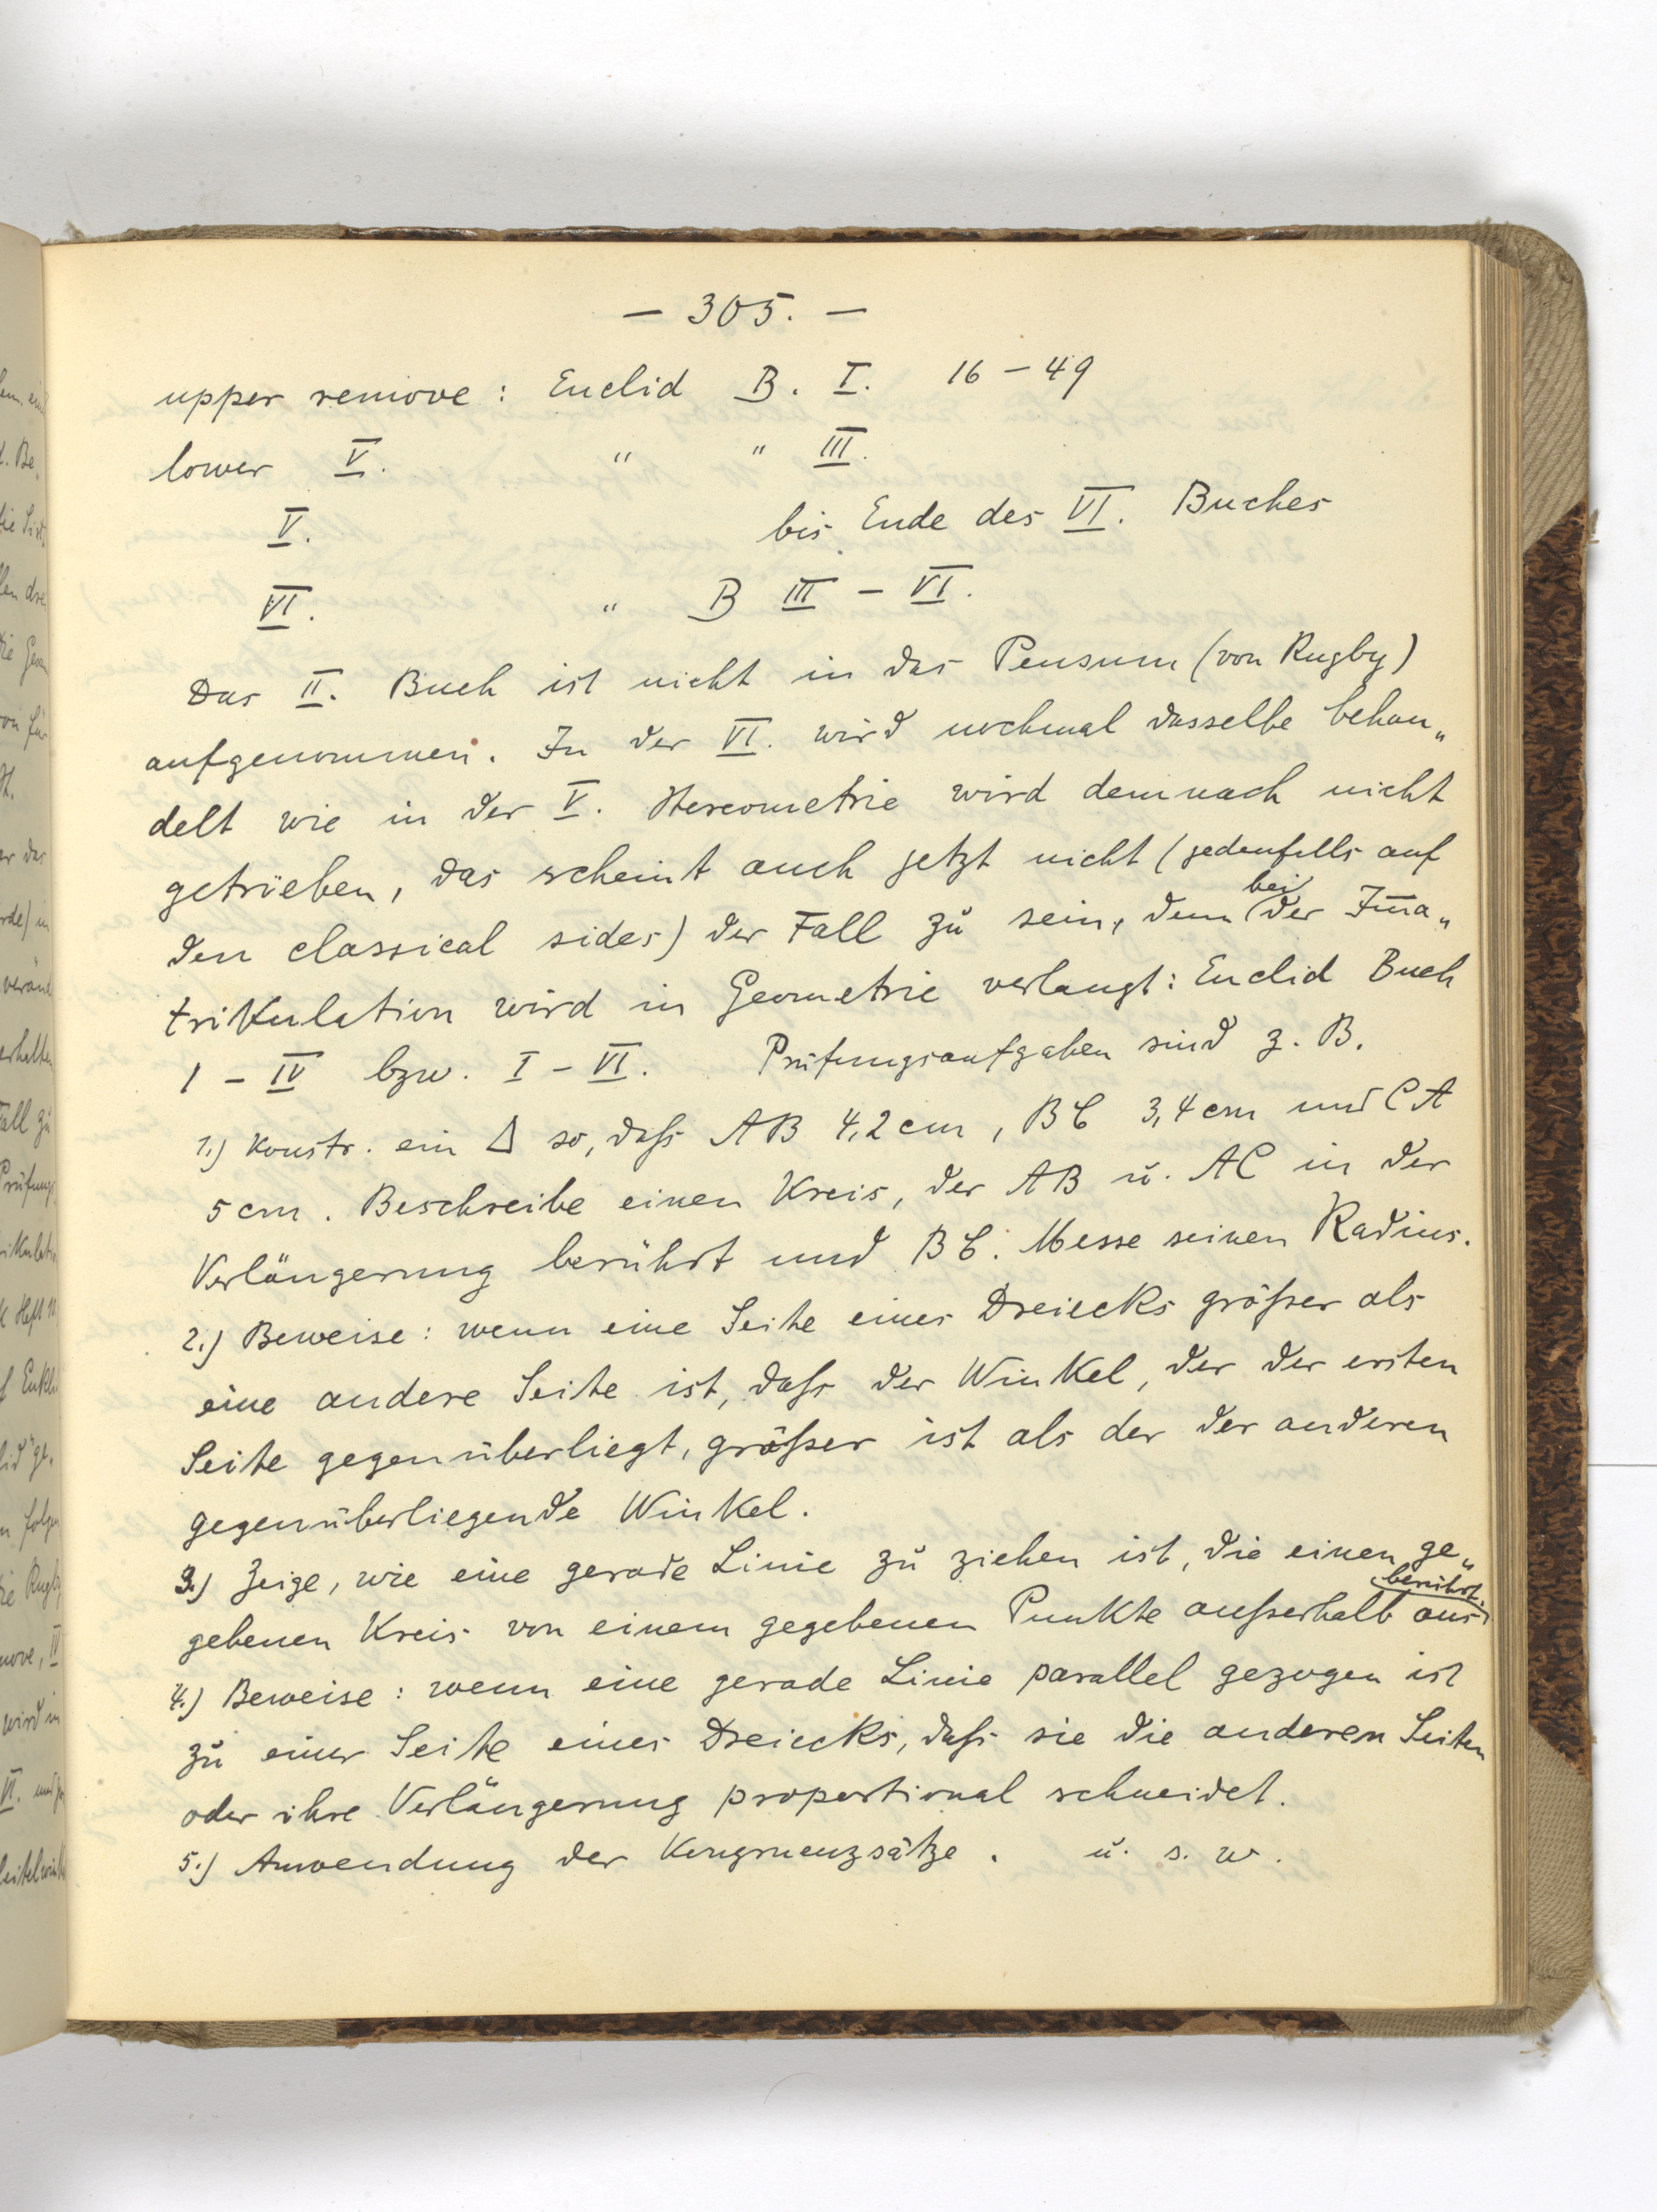 – 305. –
upper remove: Euclid B. I. 16 – 49
lower V. " " III.
V. bis Ende des VI. Buches
VI. " B III – VI.
Das II. Buch ist nicht in das Pensum (von Rugby)
aufgenommen. In der VI. wird nochmal dasselbe behan„
delt wie in der V. Stereometrie wird demnach nicht
getrieben, das scheint auch jetzt nicht (jedenfalls auf
den classical sides) der Fall zu sein, denn bei der Im̅a„
trikulation wird in Geometrie verlangt: Euclid Buch
I – IV bzw. I – VI. Prüfungsaufgaben sind z. B.
1.) Konstr. ein Δ so, daß AB 4,2 cm, BC 3,4 cm und CA
5 cm. Beschreibe einen Kreis, der AB u. AC in der
Verlängerung berührt und BC. Messe seinen Radius.
2.) Beweise: wenn eine Seite eines Dreiecks größer als
eine andere Seite ist, daß der Winkel, der der ersten
Seite gegenüberliegt, größer ist als der der anderen
gegenüberliegende Winkel.
3.) Zeige, wie eine gerade Linie zu ziehen ist, die einen ge„
gebenen Kreis von einem gegebenen Punkte außerhalb aus berührt.
4.) Beweise: wenn eine gerade Linie parallel gezogen ist
zu einer Seite eines Dreiecks, daß sie die anderen Seiten
oder ihre Verlängerung proportional schneidet.
5.) Anwendung der Kongruenzsätze. u. s. w.